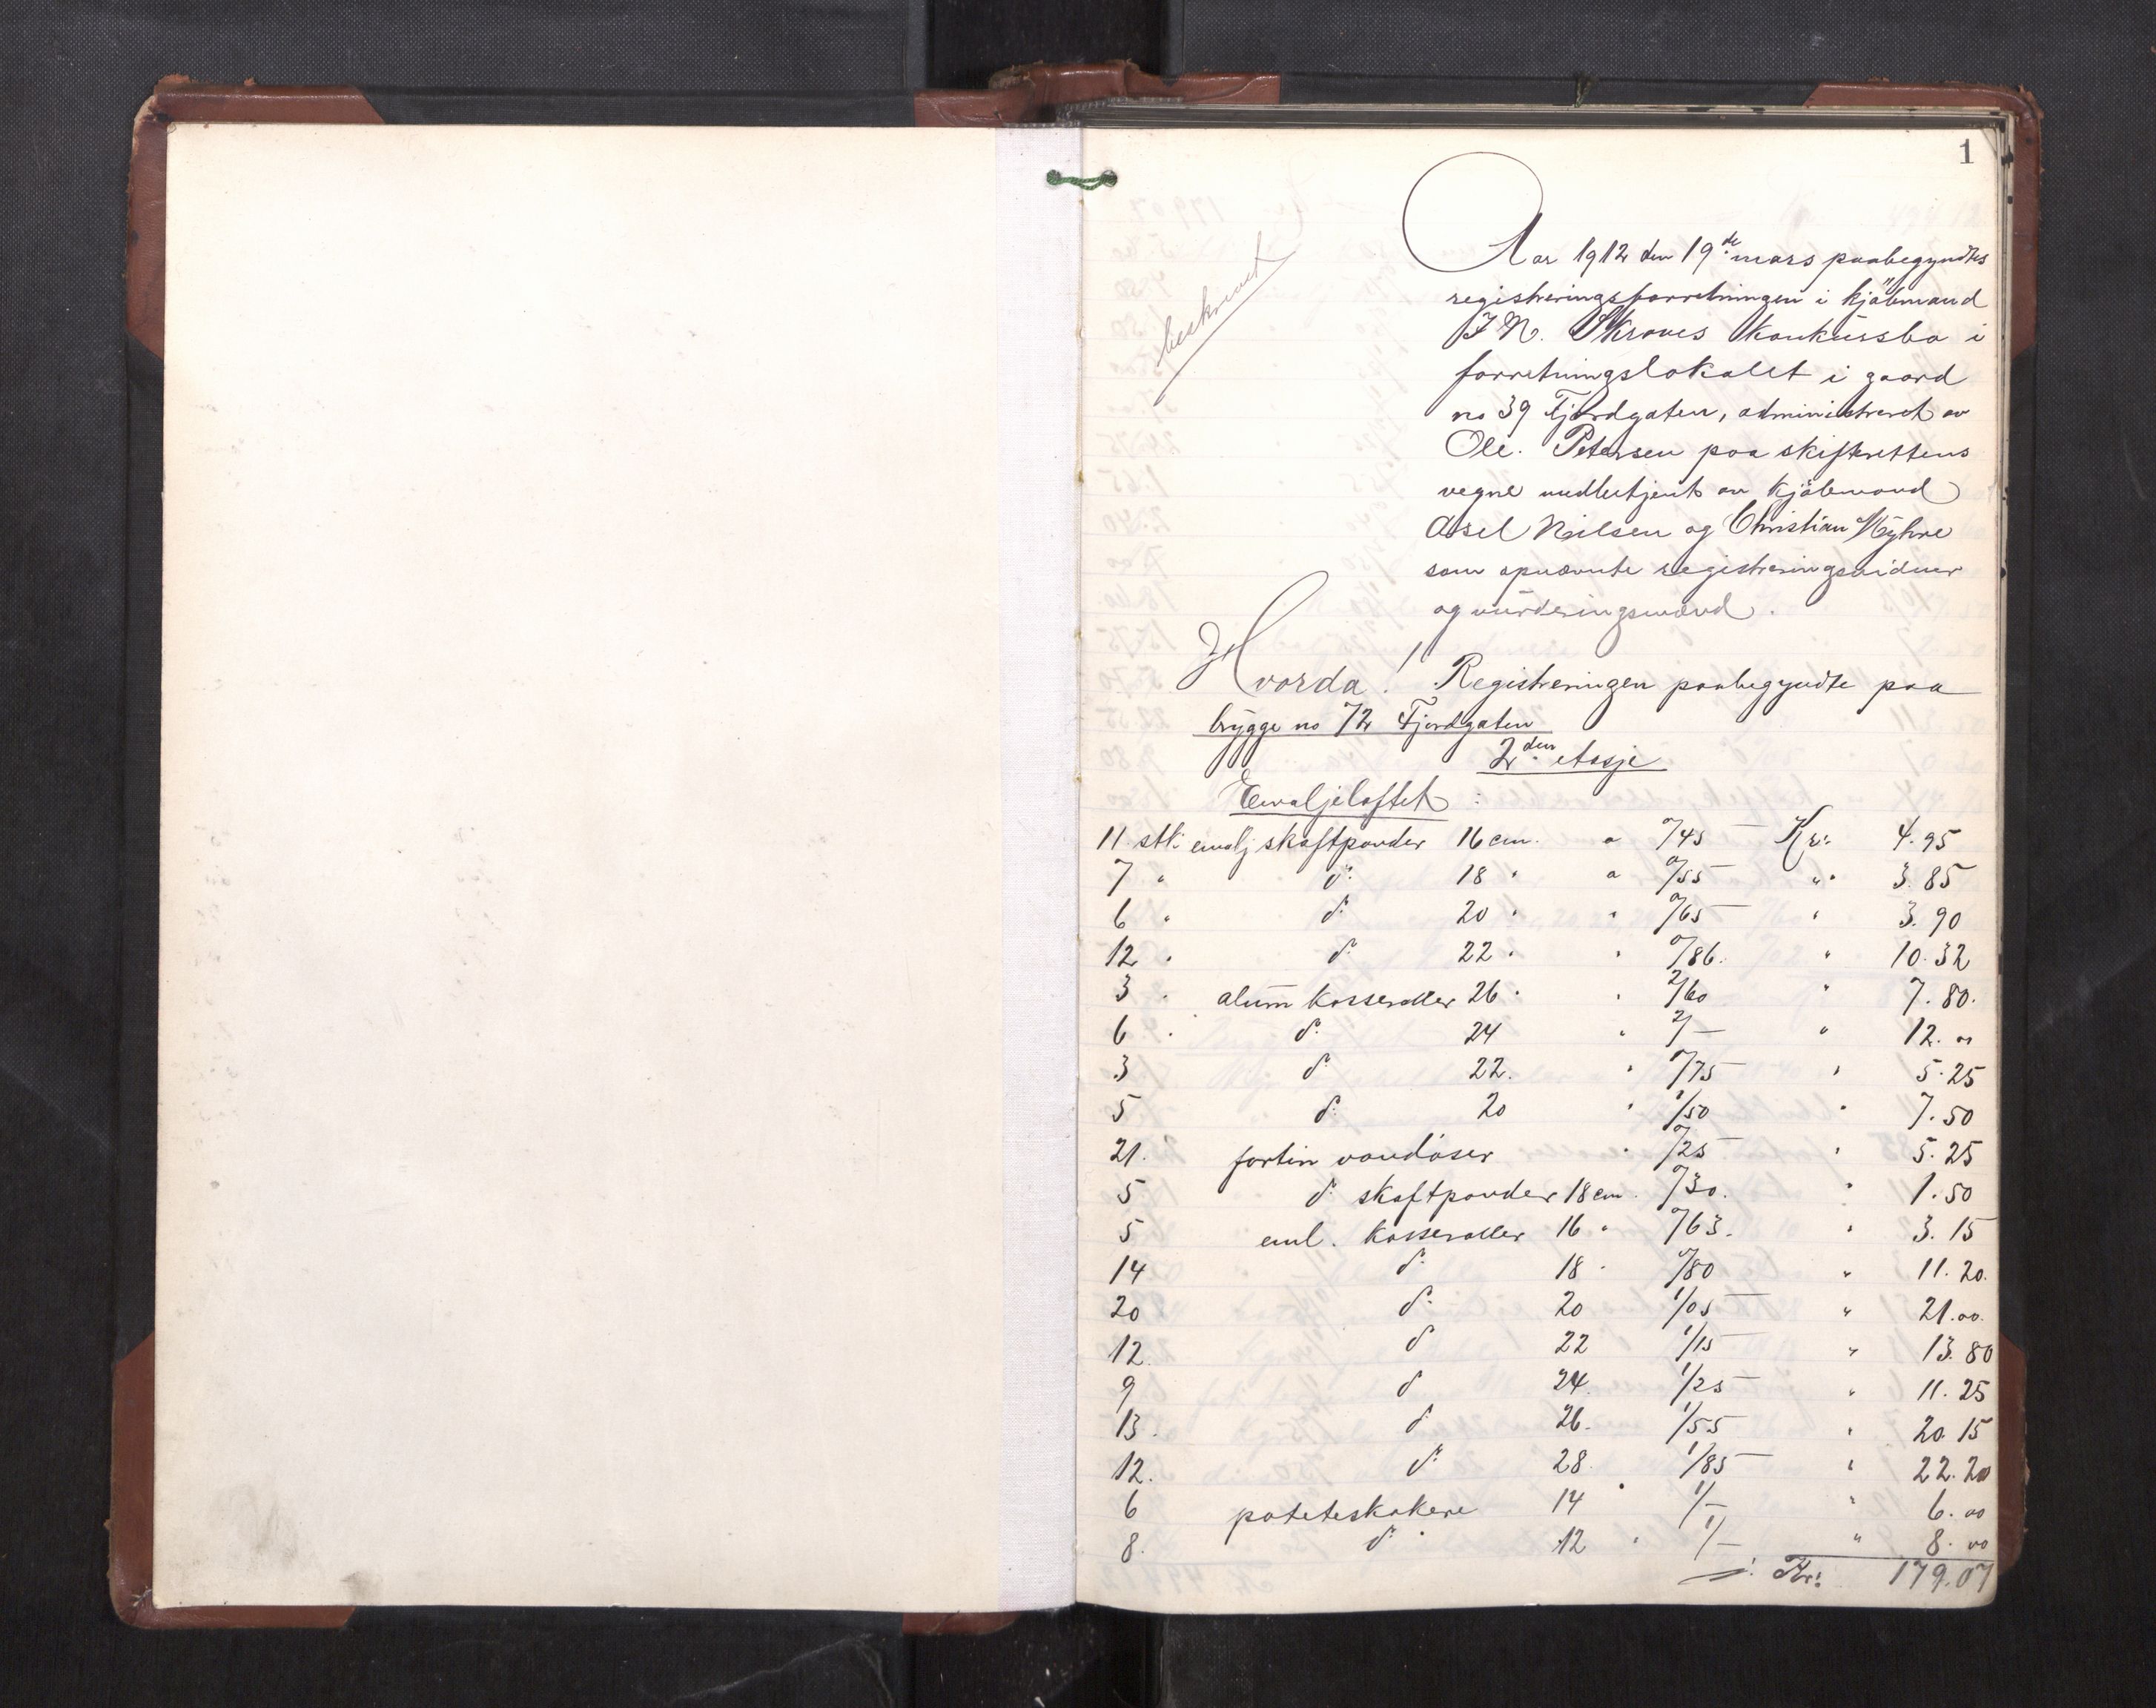 1
beskrevet
Aar 1912 den 19de mars paabegyndtes
registreringsforretningen i kjöbmand
J N. Skroves konkursbo i
forretningslokalet i gaard
no 39 Fjordgaten, administreret av
Ole. Petersen paa skifterettens
vegne underbetjent av kjöbmand
Axel Nilsen og Christian Myhre
som opnævnte registreringsvidner
og vurderingsmænd.
Hvorda! Registreringen paabegyndte paa
brygge no 72 Fjordgaten
2den etasje
Emaljeloftet :
11 stk: emalj skaftpander 16 cm. a 0/45 Kr: 4.95
7 " do 18 " a 0/55 " 3.85
6 " do 20 " " 0/65 " 3.90
12 " do 22 " " 0/86. " 10.32
3 " alum kasseroller 26 " " 2/60 " 7.80.
6 " do 24 " 2/— " 12.00
3 do 22. " 1/75 " 5.25
5 do 20 " 1/50 " 7.50
21. fortin vandöser " 0/25 " 5.25
5 do skaftpander 18 cm. 0/30. " 1.50
5 eml. kasseroller 16 " 0/63. " 3.15
14 do 18 " 0/80 " 11.20.
20 do 20 1/05 " 21.00.
12. do 22 1/15 " 13.80
9 do 24. 1/25 " 11.25
13. do 26. 1/55 " 20.15
12. do 28. 1/85 " 22.20
6 poteteskokere 14 " 1/— " 6.00
8. do 12 " 1/— " 8.00
Kr: 179.07